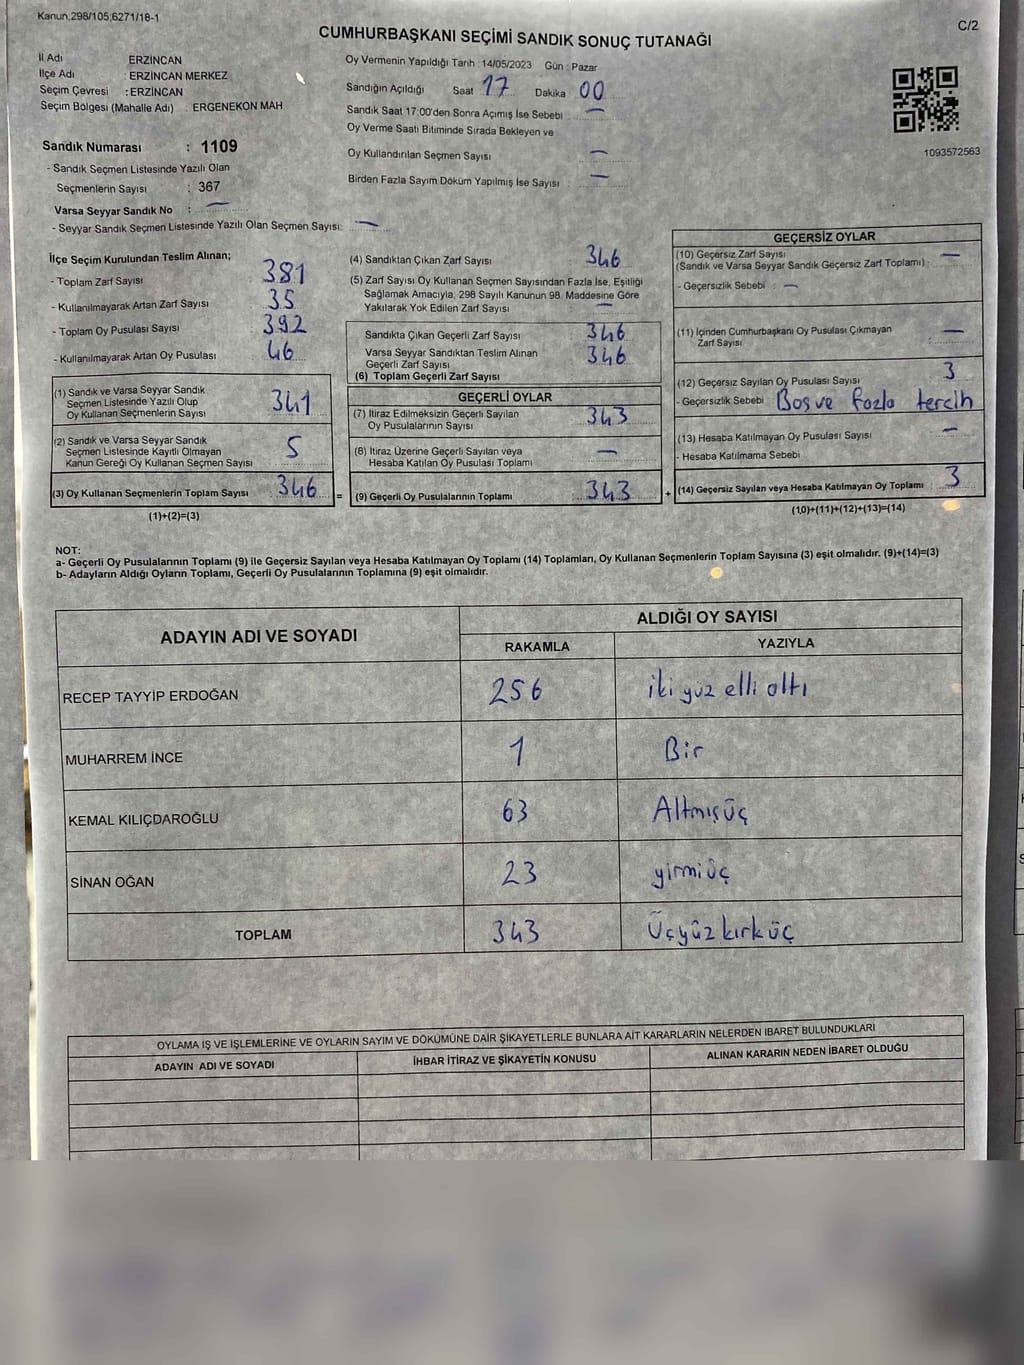 Kanun,298/105,6271/18-1
C/2
CUMHURBAŞKANI SEÇİMİ SANDIK SONUÇ TUTANAĞI
İl Adı ERZİNCAN
İlçe Adı : ERZİNCAN MERKEZ
Seçim Çevresi : ERZİNCAN
Seçim Bölgesi (Mahalle Adı) : ERGENEKON MAH
Sandık Numarası : 1109
- Sandık Seçmen Listesinde Yazılı Olan
Seçmenlerin Sayısı : 367
Varsa Seyyar Sandık No : —
- Seyyar Sandık Seçmen Listesinde Yazılı Olan Seçmen Sayısı: —
Oy Vermenin Yapıldığı Tarih : 14/05/2023 Gün : Pazar
Sandığın Açıldığı Saat 17 Dakika 00
Sandık Saat 17:00'den Sonra Açımış İse Sebebi : —
Oy Verme Saati Bitiminde Sırada Bekleyen ve
Oy Kullandırılan Seçmen Sayısı : —
Birden Fazla Sayım Döküm Yapılmış İse Sayısı : —
1093572563
İlçe Seçim Kurulundan Teslim Alınan;
- Toplam Zarf Sayısı 381
- Kullanılmayarak Artan Zarf Sayısı 35
- Toplam Oy Pusulası Sayısı 392
- Kullanılmayarak Artan Oy Pusulası 46
(1) Sandık ve Varsa Seyyar Sandık
Seçmen Listesinde Yazılı Olup
Oy Kullanan Seçmenlerin Sayısı 341
(2) Sandık ve Varsa Seyyar Sandık
Seçmen Listesinde Kayıtlı Olmayan
Kanun Gereği Oy Kullanan Seçmen Sayısı 5
(3) Oy Kullanan Seçmenlerin Toplam Sayısı 346 =
(1)+(2)=(3)
(4) Sandıktan Çıkan Zarf Sayısı 346
(5) Zarf Sayısı Oy Kullanan Seçmen Sayısından Fazla İse, Eşitliği
Sağlamak Amacıyla; 298 Sayılı Kanunun 98. Maddesine Göre
Yakılarak Yok Edilen Zarf Sayısı : —
Sandıkta Çıkan Geçerli Zarf Sayısı 346
Varsa Seyyar Sandıktan Teslim Alınan 346
Geçerli Zarf Sayısı
(6) Toplam Geçerli Zarf Sayısı
GEÇERLİ OYLAR
(7) İtiraz Edilmeksizin Geçerli Sayılan 343
Oy Pusulalarının Sayısı
(8) İtiraz Üzerine Geçerli Sayılan veya —
Hesaba Katılan Oy Pusulası Toplamı
(9) Geçerli Oy Pusulalarının Toplamı : 343 +
GEÇERSİZ OYLAR
(10) Geçersiz Zarf Sayısı —
(Sandık ve Varsa Seyyar Sandık Geçersiz Zarf Toplamı) :
- Geçersizlik Sebebi : —
(11) İçinden Cumhurbaşkanı Oy Pusulası Çıkmayan —
Zarf Sayısı
(12) Geçersiz Sayılan Oy Pusulası Sayısı 3
- Geçersizlik Sebebi Boş ve fazla tercih
(13) Hesaba Katılmayan Oy Pusulası Sayısı —
- Hesaba Katılmama Sebebi
(14) Geçersiz Sayılan veya Hesaba Katılmayan Oy Toplamı : 3
(10)+(11)+(12)+(13)=(14)
NOT:
a- Geçerli Oy Pusulalarının Toplamı (9) ile Geçersiz Sayılan veya Hesaba Katılmayan Oy Toplamı (14) Toplamları, Oy Kullanan Seçmenlerin Toplam Sayısına (3) eşit olmalıdır. (9)+(14)=(3)
b- Adayların Aldığı Oyların Toplamı, Geçerli Oy Pusulalarının Toplamına (9) eşit olmalıdır.
ADAYIN ADI VE SOYADI ALDIĞI OY SAYISI
RAKAMLA YAZIYLA
RECEP TAYYİP ERDOĞAN 256 iki yüz elli altı
MUHARREM İNCE 1 Bir
KEMAL KILIÇDAROĞLU 63 Altmışüç
SİNAN OĞAN 23 yirmiüç
TOPLAM 343 Üçyüzkırküç
OYLAMA İŞ VE İŞLEMLERİNE VE OYLARIN SAYIM VE DÖKÜMÜNE DAİR ŞİKAYETLERLE BUNLARA AİT KARARLARIN NELERDEN İBARET BULUNDUKLARI
ADAYIN ADI VE SOYADI İHBAR İTİRAZ VE ŞİKAYETİN KONUSU ALINAN KARARIN NEDEN İBARET OLDUĞU